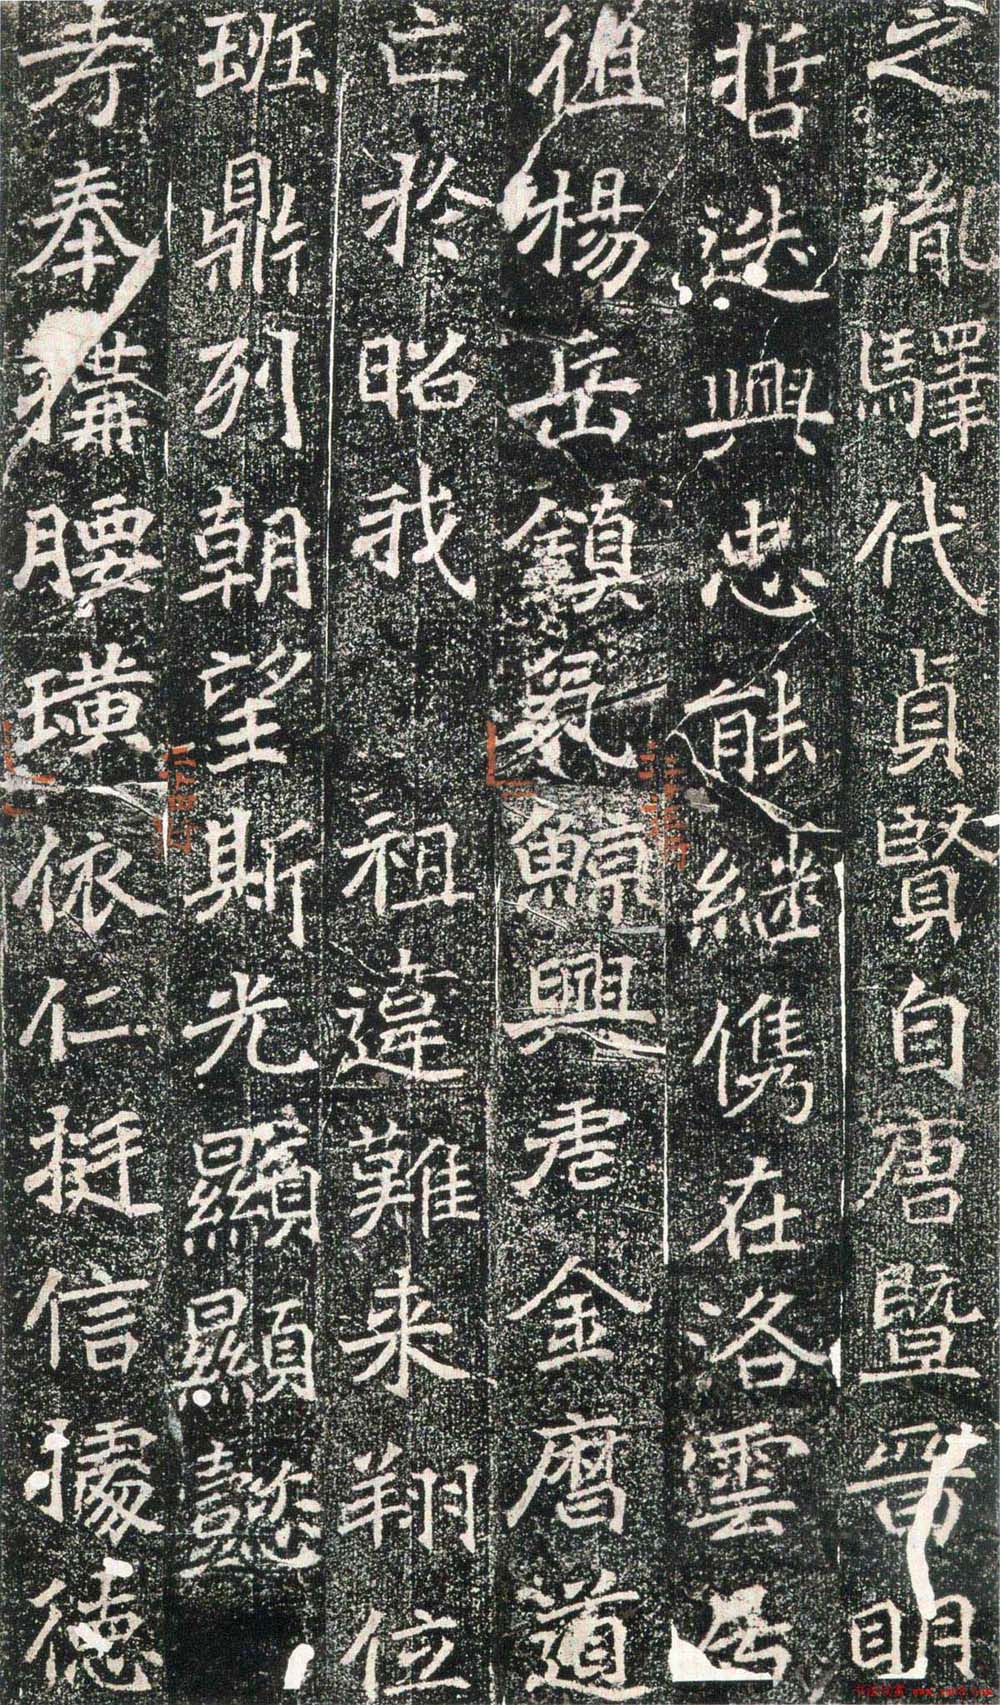 之胤驛代貞賢自唐暨晉明
哲迭興忠能继儁在洛雲
楊岳鎮鯨興虐金曆道
亡於昭我祖違難来翔位
班鼎列朝望斯光顯顯懿
考奉構腰璜依仁挺信據德